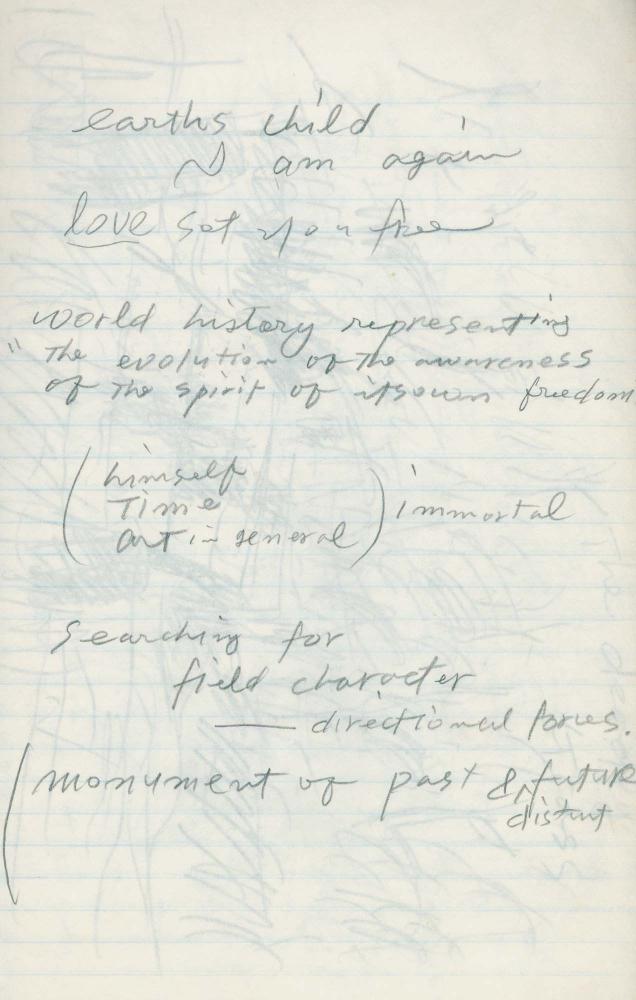 earths child
I am again
love set you free
world history representing
"The evolution of the awareness
of the spirit of its own freedom
(himself
Time
art in general) immortal
Searching for
field character
— directional forces.
(monument of past & future
distant